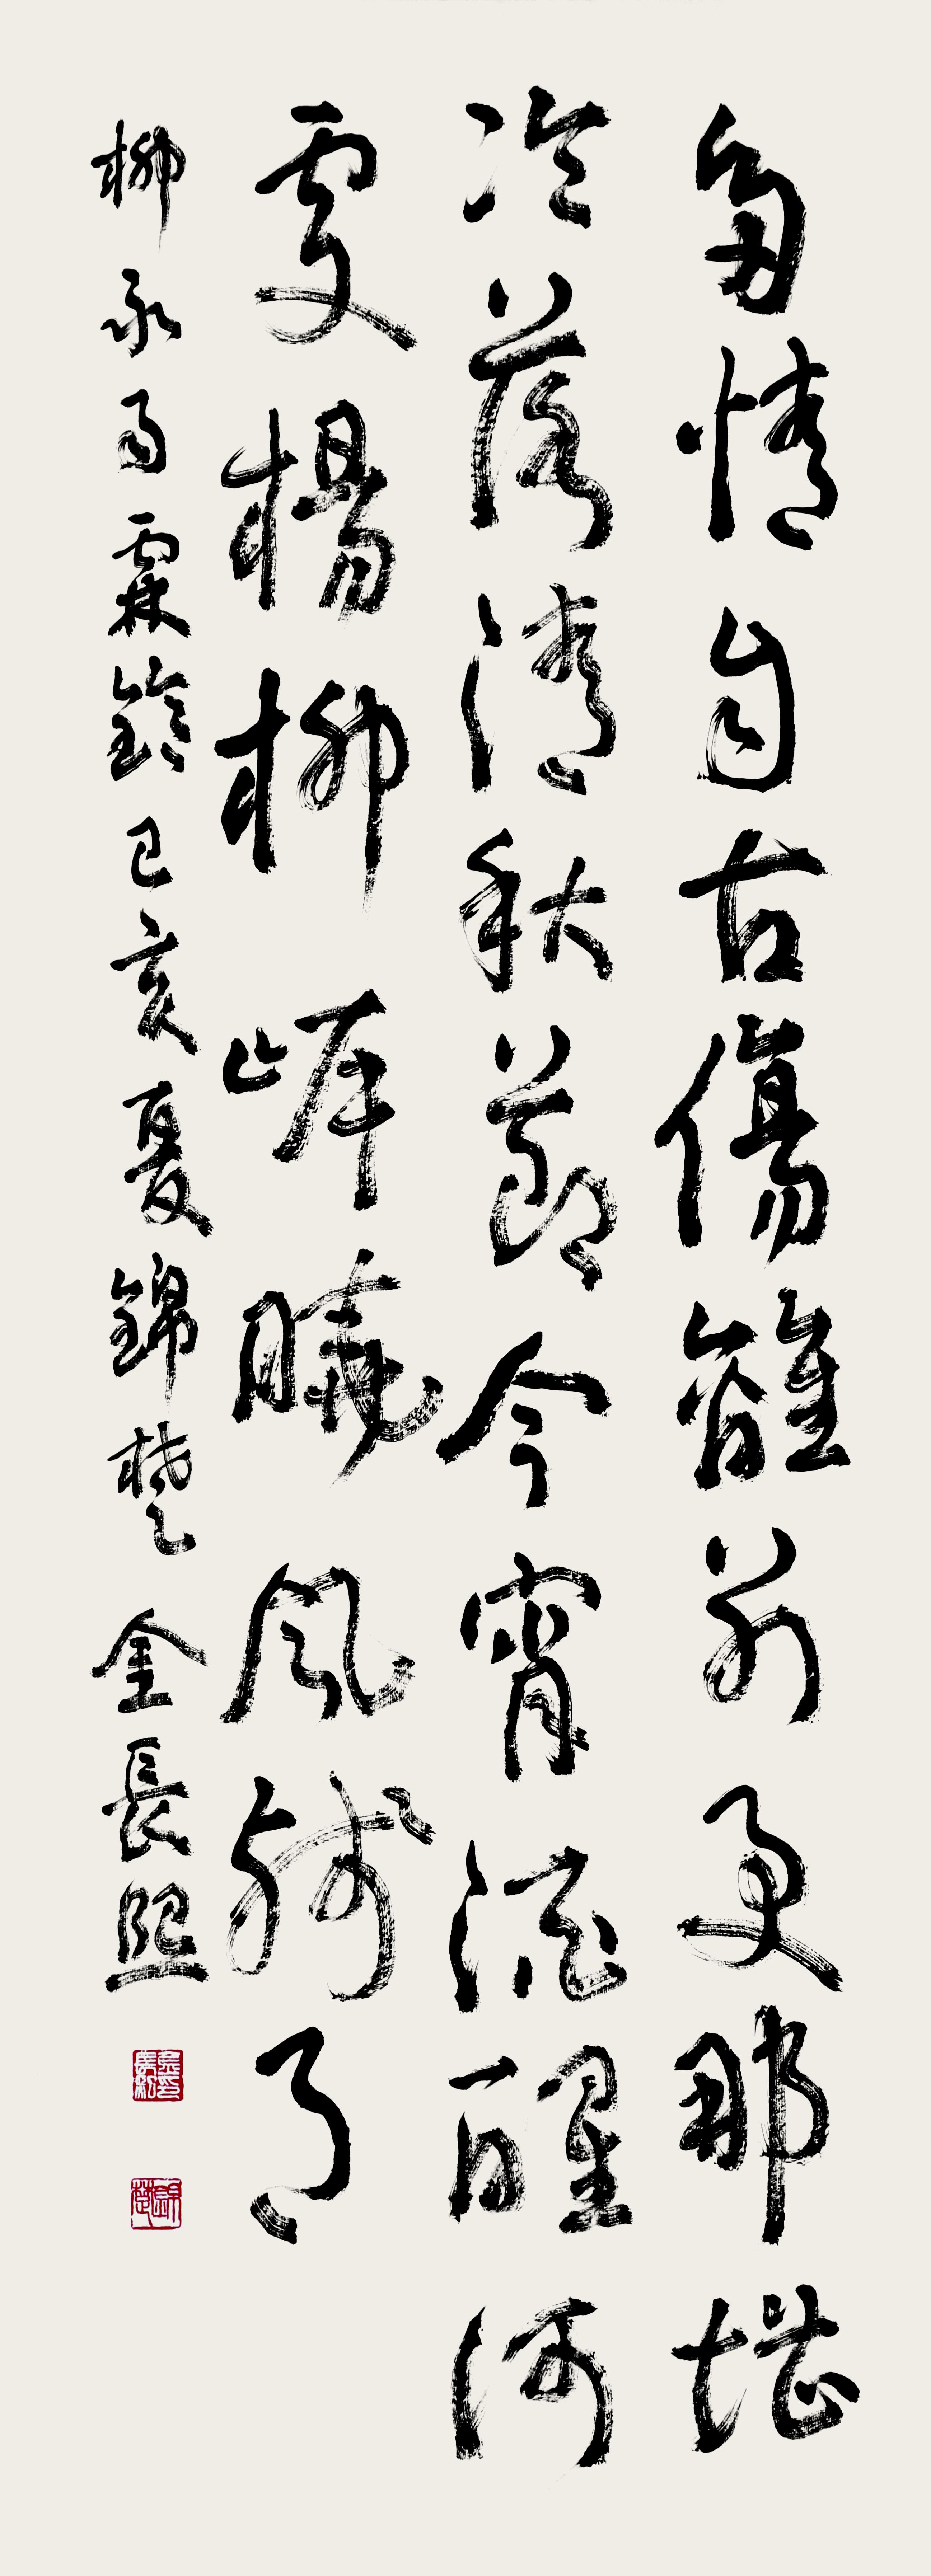 多情自古傷離別更那堪
冷落清秋節今宵酒醒何
處楊柳岸曉風殘月
柳永雨霖鈴己亥夏錦楚金長熙